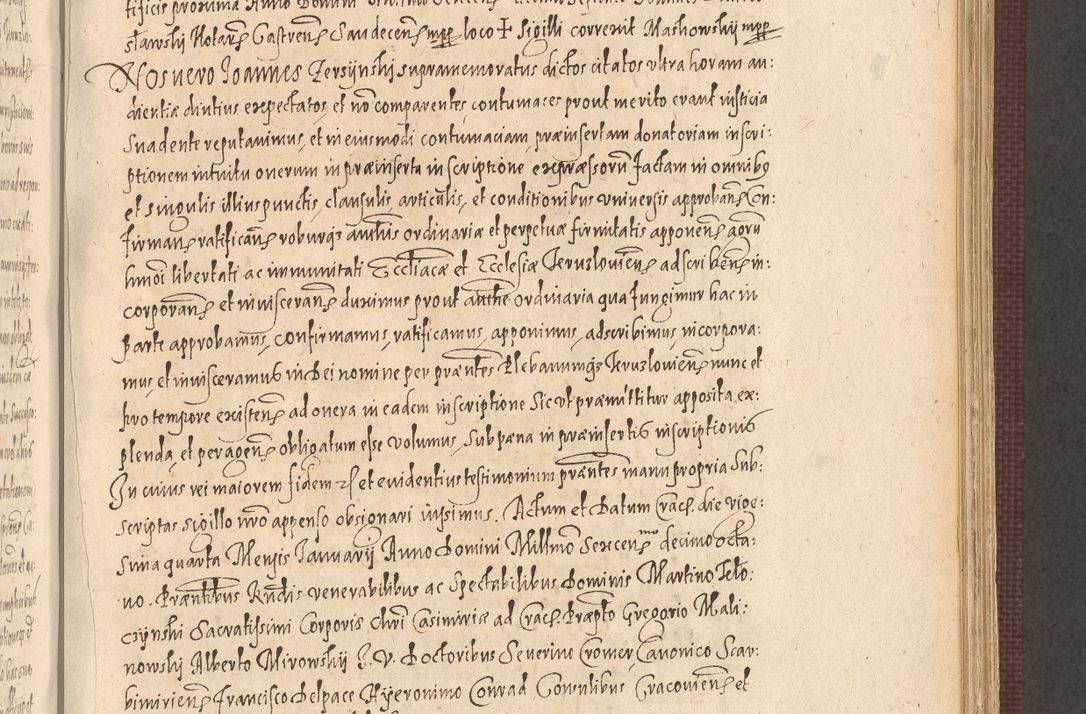 tificis proxima Anno Domini
sławskij Notari͂ Castren͂ Sandecen͂ mpp loco + Sigilli correxit Mashowskij mpp
Nos uero Joannes Zersijnski supramemoratus dictos citatos vltra horam au:
dientiæ diutius expectatos, et nõ comparentes contumaces prout merito erant iusticia
Suadente reputauimus, et in eiusmodi contumaciam præinsertam donatoriam inscri:
ptionem intuitu onerum in præinserta inscriptione expræssorũ factam in omnibꝯ
et singulis illius punctis, clausulis articulis, et conditionibus vniuersis approban͂ Con:
firman͂ ratifican͂ roburqꝫ authis ordinariæ et perpetuæ firmitatis apponen͂ aorũ
hmõi libertati ac immunitati Eccliacæ et Ecclesiæ Jeruzlouien͂ adscriben͂ in:
corporan͂ et inuisceran͂ duximus prout authe ordinaria qua fungimur hac in
parte approbamus, confirmamus, ratificamus, apponimus, adscribimus, incorpora:
mus, et inuisceramus in Dei nomine per præntes Plebanumqꝫ Jeruzlouien͂ nunc et
pro tempore existen͂ ad onera in eadem inscriptione Sicut præmittitur apposita ex:
plenda, et peragen͂ obligatum esse volumus, Sub pæna in præinsertis inscriptionis
In cuius rei maiorem fidem et euidentius testimonium præntes manu propria Sub:
scriptas sigillo nro appenso obsignari iussimus. Actum et Datum Crac͂ die vige:
sima quarta Mensis Januarij Anno Domini Millmo Sexcen͂mo decimo octa:
uo. Præntibus Rndis venerabilibus ac Spectabilibus Dominis Martino Telo:
czynski Sacratissimi Corporis Chri Casimiriæ ad Crac͂ Præpto Gregorio Mali:
nowskij Alberto Mirowskij J. V. Doctoribus Seuerino Cromer, Canonico Scar:
bimirien͂ Francisco Delpace Hyeronimo Conrad Consulibus Cracouien͂ et